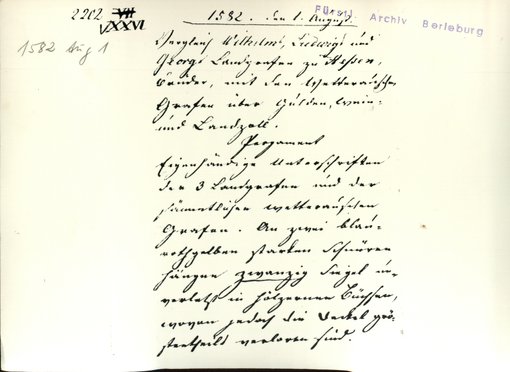 2202 VII
V/XXVI
1582 Aug 1
1582. den 1. August.
Fürstl. Archiv Berleburg
Vergleich Wilhelms, Ludwigs und
Georgs Landgrafen zu Hessen,
Brüder, mit den Wetterauischen
Grafen über Gülden, Wein-
und Landzoll.
Pergament
Eigenhändige Unterschriften
der 3 Landgrafen und der
sämmtlichen wetterauischen
Grafen. An zwei blau-
rothgelben starken Schnüren
hängen zwanzig Siegel un-
verletzt in hölzernen Büchsen,
wovon jedoch die Deckel grö-
stentheils verloren sind.